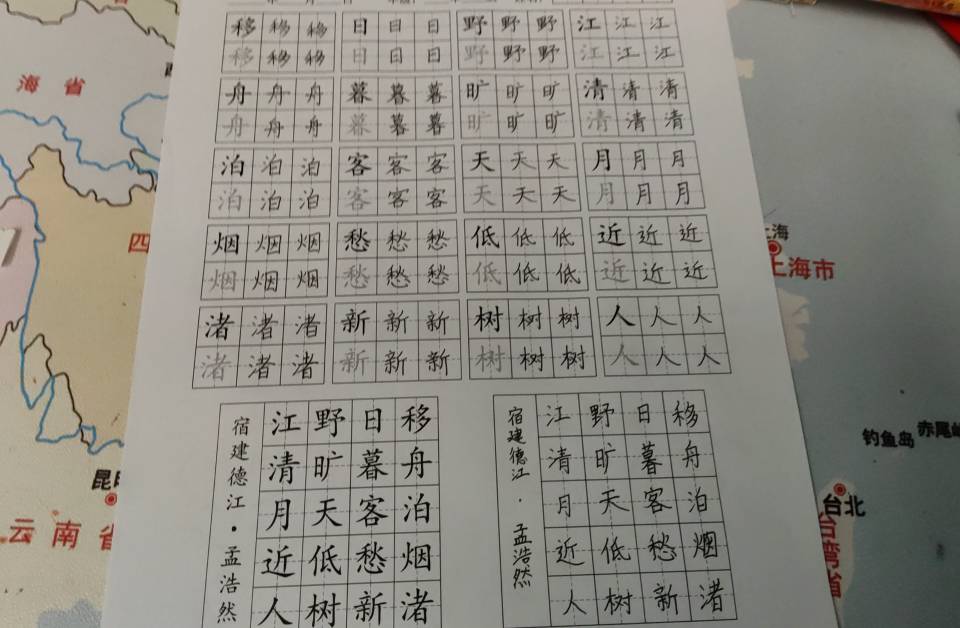 移移移 日日日 野野野 江江江
移移移 日日日 野野野 江江江
舟舟舟 暮暮暮 旷旷旷 清清清
舟舟舟 暮暮暮 旷旷旷 清清清
泊泊泊 客客客 天天天 月月月
泊泊泊 客客客 天天天 月月月
烟烟烟 愁愁愁 低低低 近近近
烟烟烟 愁愁愁 低低低 近近近
渚渚渚 新新新 树树树 人人人
渚渚渚 新新新 树树树 人人人
移舟泊烟渚
日暮客愁新
野旷天低树
江清月近人
宿建德江·孟浩然
移舟泊烟渚
日暮客愁新
野旷天低树
江清月近人
宿建德江·孟浩然
海省
四
云南省
上海市
钓鱼岛
台北
台湾省